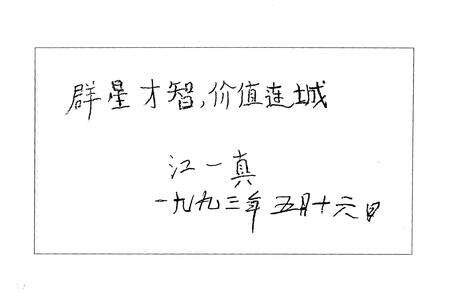 群星才智,价值连城
江一真
一九九三年五月十六日